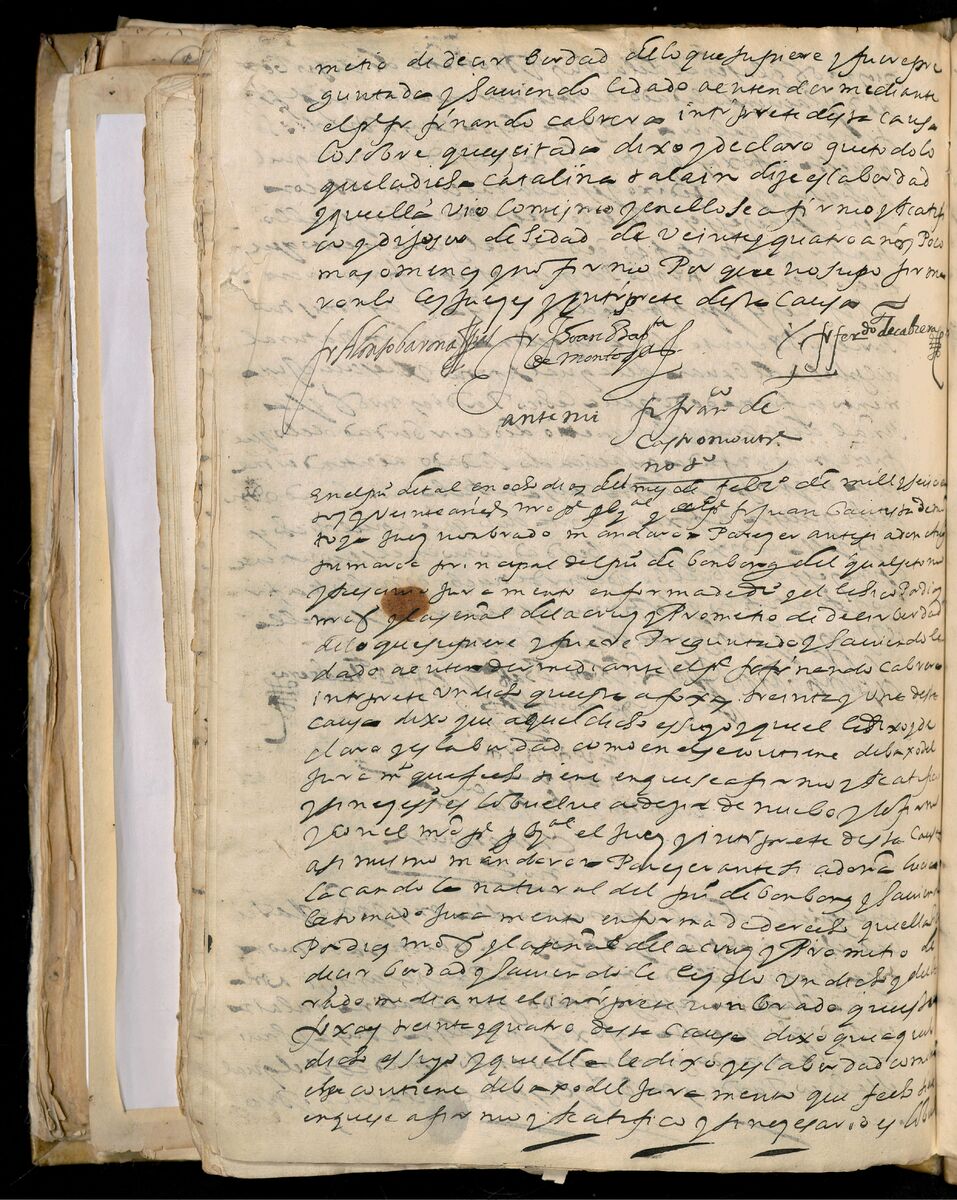 metio de decir berdad delo que supiere y fuere pre
guntada y haviendo le dado a entender mediante
el pe fr frnando cabrera interprete desta causa
lo sobre que es citada dixo y declaro que todo lo
que la dicha catalina dize es la berdad
y que ella vio lo mismo y en ello se afirmo y Ratifi
co y dijo ser de hedad de veinte y quatro años Poco
mas o menos y no firmo Por que no supo firma
ronlo los jueces y interprete desta Causa
fr Alonso barona fr Joan Bapta de montoya fr ferdo de cabrera
ante mi fr franco de
castromonte
noto
En el pu de tal en ocho dias del mes de febro de mill y seiscien
tos y veinte años nro pe y el pe fr Juan bautista de mon
toya juez nonbrado mandaron Parezer ante si a don
principal del pu de bonbon del qual se tomo
y Rescivio Juramento en forma de dro y el le hizo Por dios
nro sr y la señal de la cruz y Prometio de decir berdad
de lo que supiere y fuere Preguntado y haviendo le
dado a entender mediante el pe fr frnando cabrera
interprete un dicho que esta a foxas treinta y una desta
causa dixo que aquel dicho es suyo y que el le dixo y de
claro y es la berdad como en el se contiene debaxo del
Juramto que fecho tiene en que se afirmo y Ratifico
y si nezesso es lo buelve a dezir de nuebo y lo firmo
y con el nro pe el Juez y interprete desta Causa
asi mismo mandaron Parezer ante si a doña
natural del pu de bonbon y havien
le tomado Juramento en forma de derecho que ella
Por dios nro sr y la señal de la cruz y Prometio de
decir berdad y haviendo le leydo un dicho y decla
rado mediante el interprete nonbrado que esta
foxas treinta y quatro desta Causa dixo que aquel
dicho es suyo y que ella le dixo y es la berdad como
se contiene debaxo del Juramento que fecho
en que se afirmo y Ratifico y si nezesario es